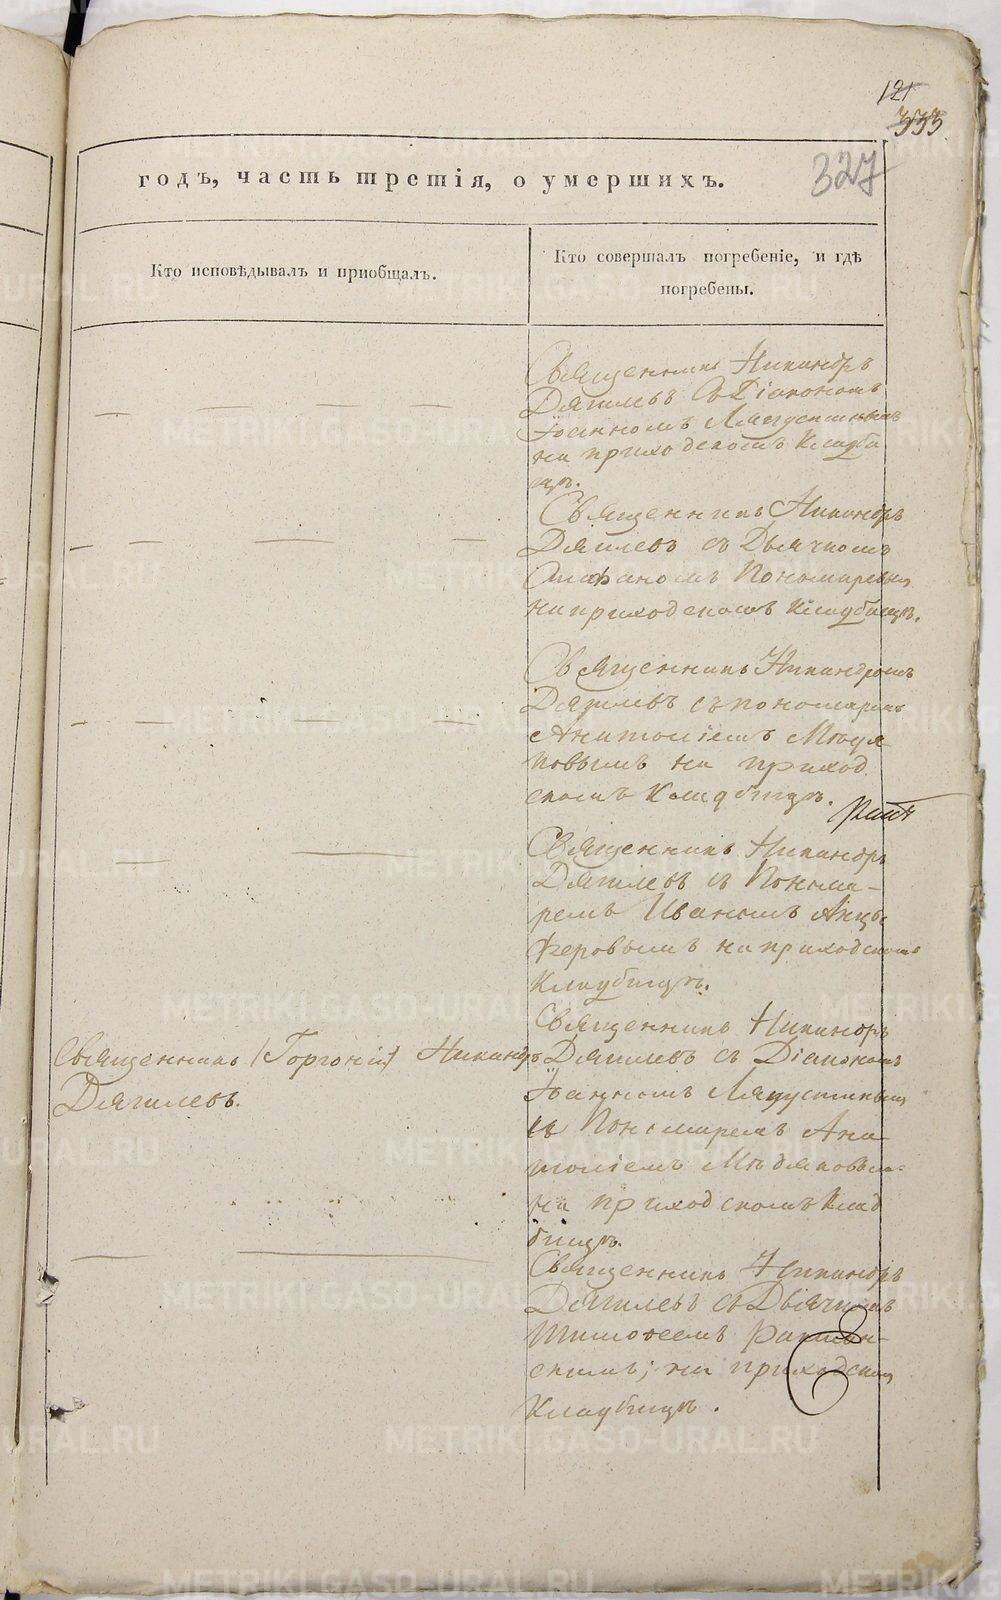 121
333
327
годъ, часть третія, о умершихъ.
Кто исповѣдывалъ и приобщалъ.
Кто совершалъ погребеніе, и гдѣ
погребены.
Священникъ Никаноръ
Дягилевъ съ Діакономъ
Іоанномъ Ляпустинымъ
на приходскомъ кладби
щѣ.
Священникъ Никаноръ
Дягилевъ съ Дьячкомъ
Стефаномъ
на приходскомъ кладбищѣ.
Священникъ Никандромъ
Дягилевъ съ пономаремъ
Анатоліемъ
повымъ на приход
скомъ кладбищѣ.
Священникъ Никаноръ
Дягилевъ съ Понома-
ремъ Иваномъ Анцы
феровымъ на приходскомъ
Кладбищѣ.
Священникъ (Горгоній) Никаноръ
Дягилевъ.
Священникъ Никаноръ
Дягилевъ съ Діакономъ
Іоанномъ Ляпустинымъ
и Пономаремъ Ана
толіемъ
на приходскомъ клад
бищѣ.
Священникъ Никаноръ
Дягилевъ съ Дьячкомъ
Тимоѳеемъ
скимъ; на приходскомъ
Кладбищѣ.
METRIKI.GASO-URAL.RU